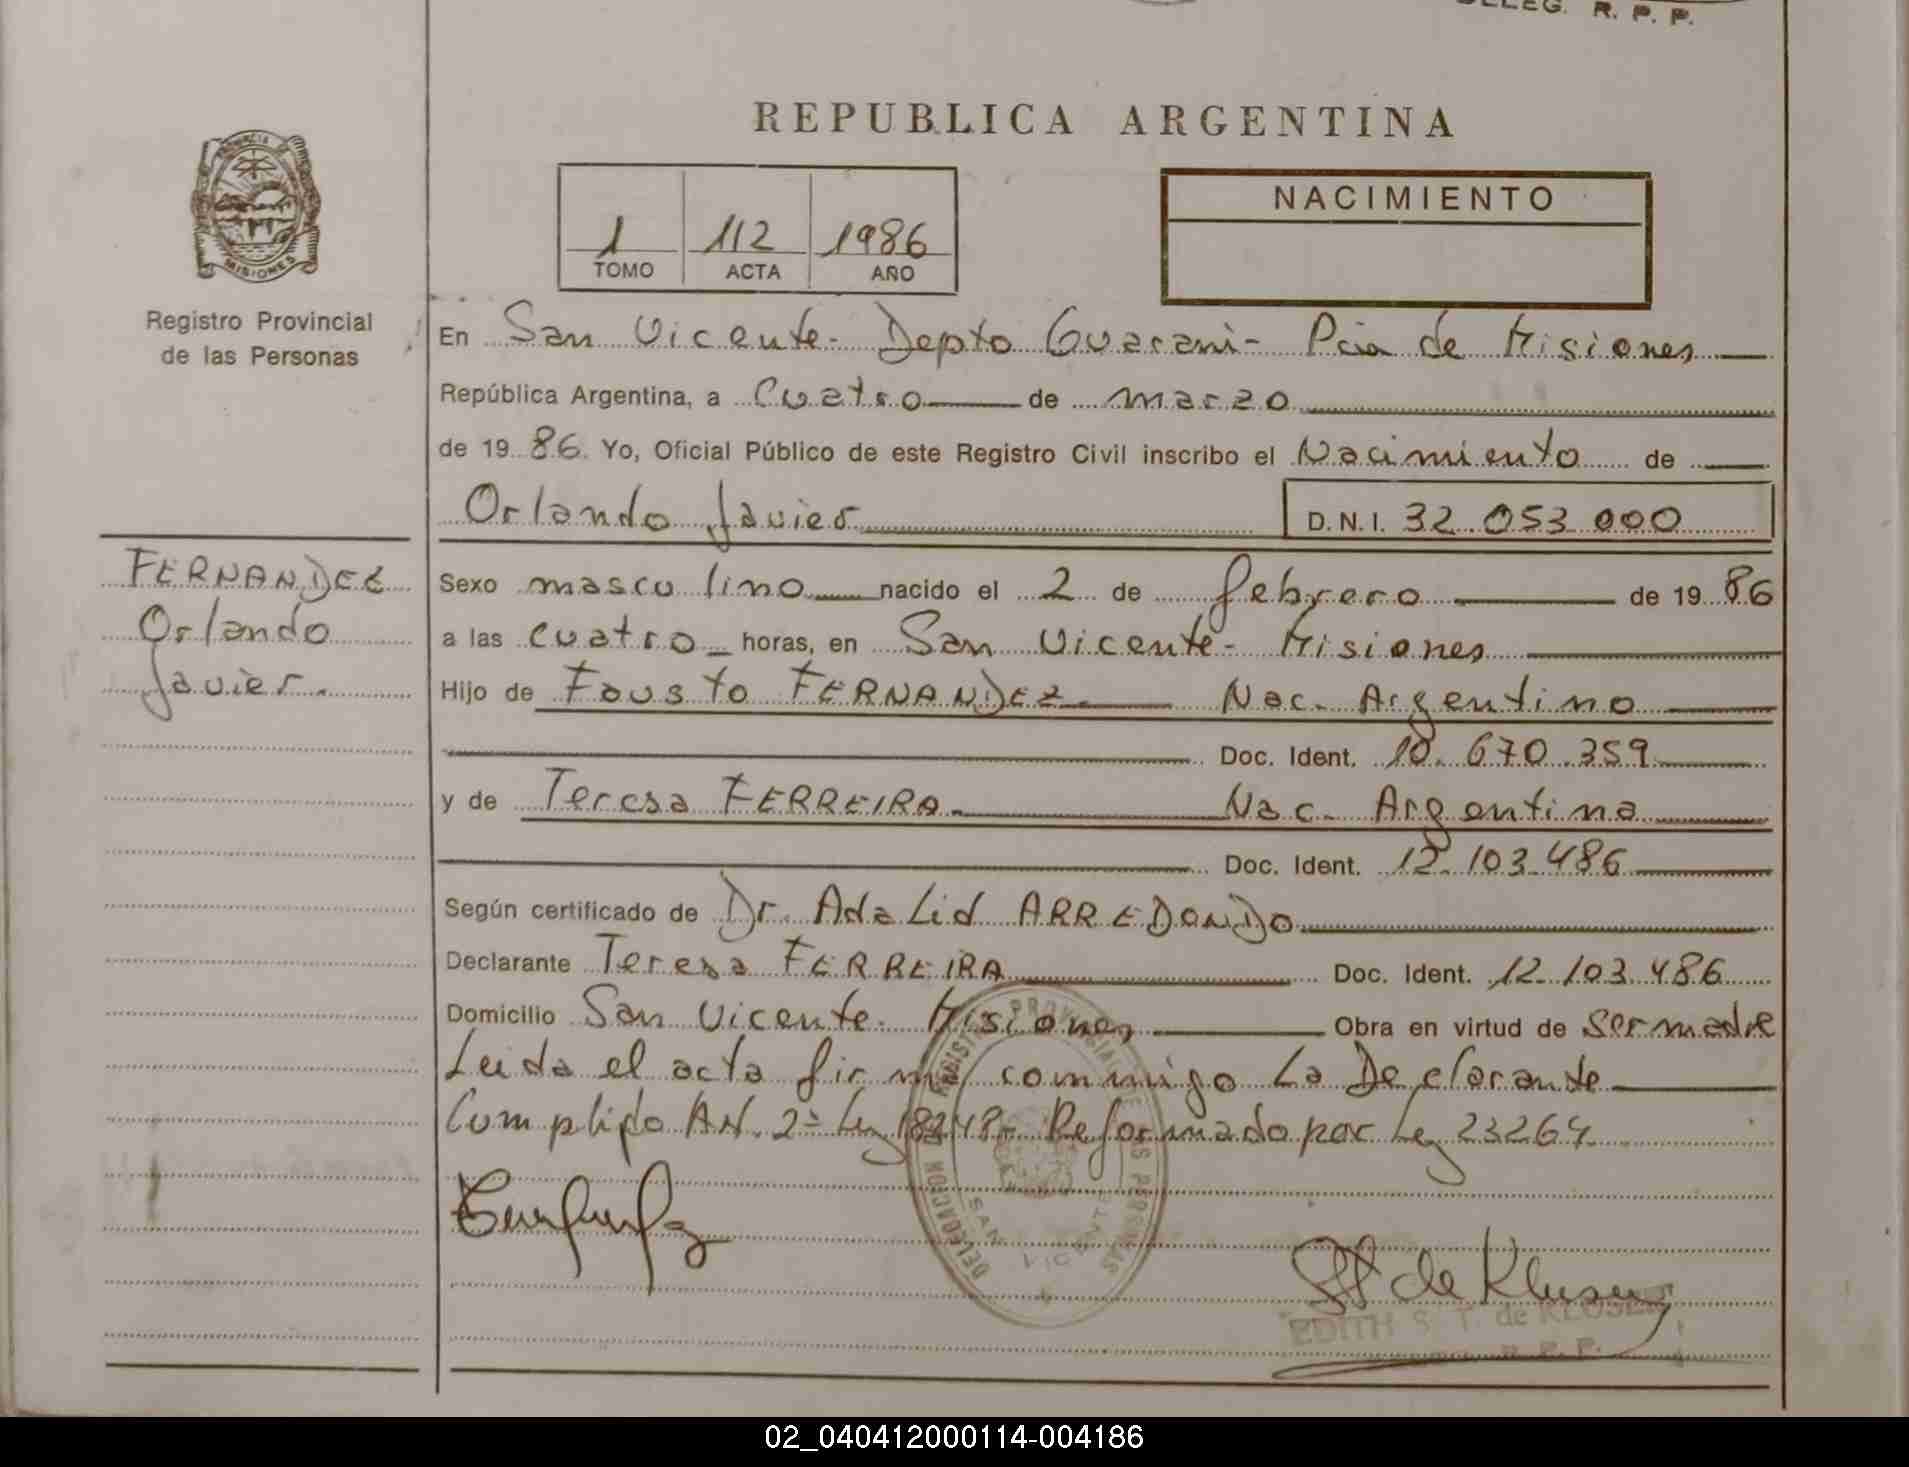 DELEG. R. P. P.
REPUBLICA ARGENTINA
PROVINCIA DE
MISIONES
Registro Provincial
de las Personas
1 112 1986
TOMO ACTA AÑO
NACIMIENTO
En San Vicente - Depto Guarani - Pcia de Misiones
República Argentina, a Cuatro de marzo
de 1986. Yo, Oficial Público de este Registro Civil inscribo el Nacimiento de
Orlando Javier D.N.I. 32 053 000
FERNANDEZ
Orlando
Javier.
Sexo masculino nacido el 2 de febrero de 1986
a las cuatro horas, en San Vicente - Misiones
Hijo de Fausto FERNANDEZ Nac. Argentino
Doc. Ident. 10.670.359
y de Teresa FERREIRA Nac. Argentina
Doc. Ident. 12.103.486
Según certificado de Dr. Adalid ARREDONDO
Declarante Teresa FERREIRA Doc. Ident. 12.103.486
Domicilio San Vicente. Misiones Obra en virtud de ser madre
Leida el acta firma conmigo La Declarante
Cumplido Art. 2º Ley 18248 - Reformado por Ley 23264
DELEGACION REGISTRO PROVINCIAL DE LAS PERSONAS
SAN VICENTE
de Klusen
EDITH S. T. de KLOSEN
R. P. P.
02_040412000114-004186